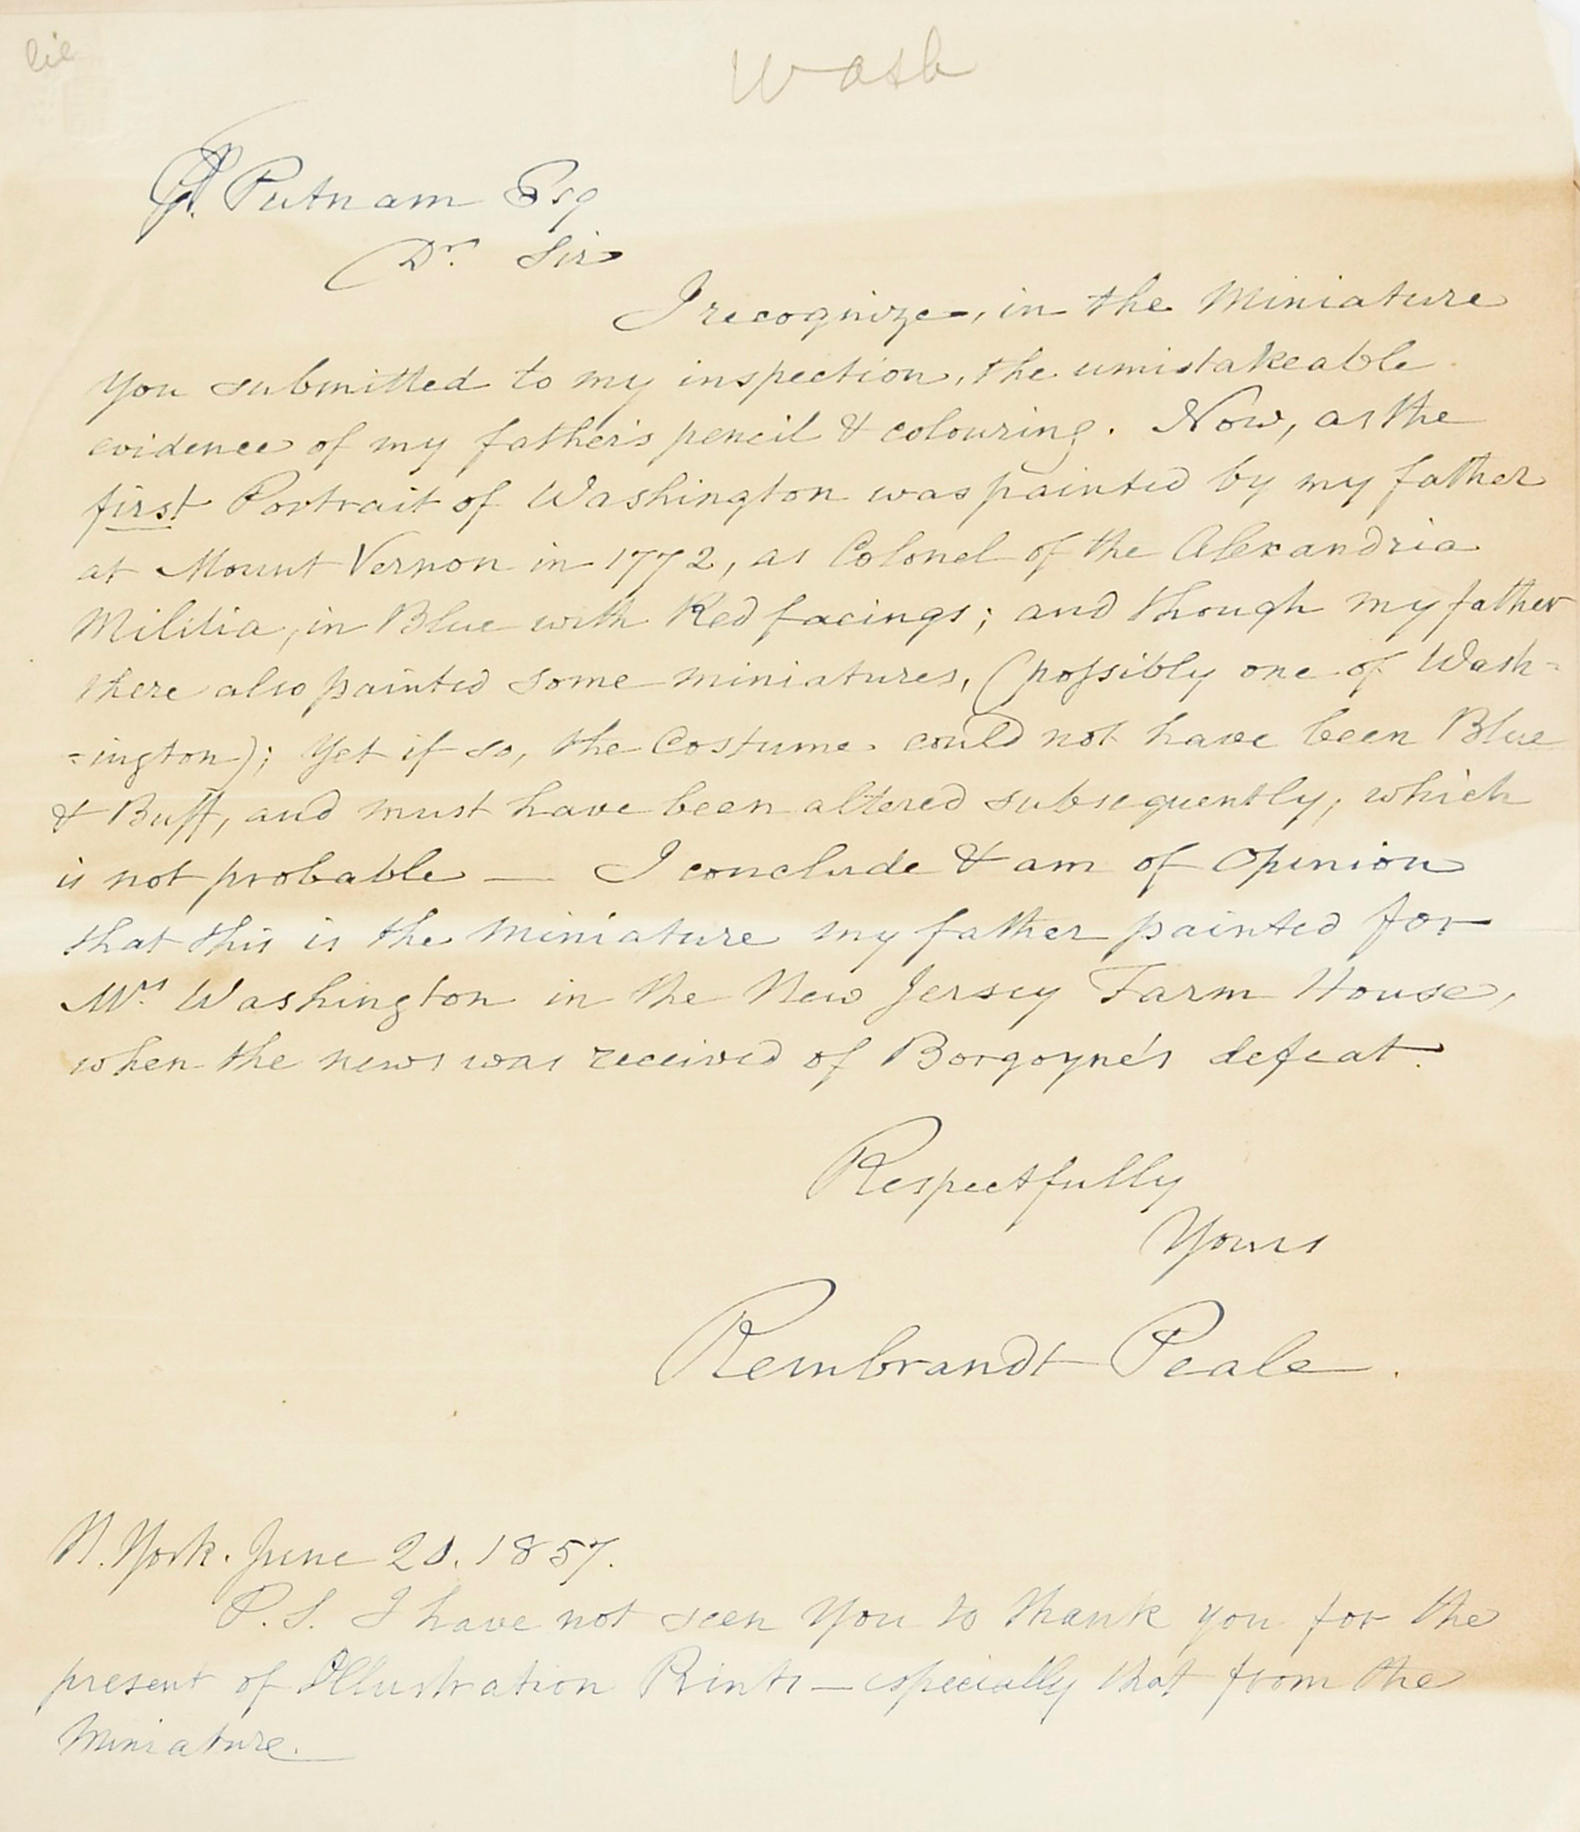 lie
Wash
GP. Putnam Esq
Dr. Sir
I recognize, in the Miniature
you submitted to my inspection, the umistakeable
evidence of my father's pencil & colouring. Now, as the
first Portrait of Washington was painted by my father
at Mount Vernon in 1772, as Colonel of the Alexandria
Militia, in Blue with Red facings; and though my father
there also painted some miniatures, (possibly one of Wash=
=ington); Yet if so, the Costume could not have been Blue
& Buff, and must have been altered subsequently, which
is not probable — I conclude & am of Opinion
that this is the Miniature my father painted for
Mrs Washington in the New Jersey Farm House,
when the news was received of Borgoyne's defeat.
Respectfully
Yours
Rembrandt Peale.
N. York. June 20. 1857.
P. S. I have not seen You to thank you for the
present of Illustration Prints — especially that from the
Miniature.